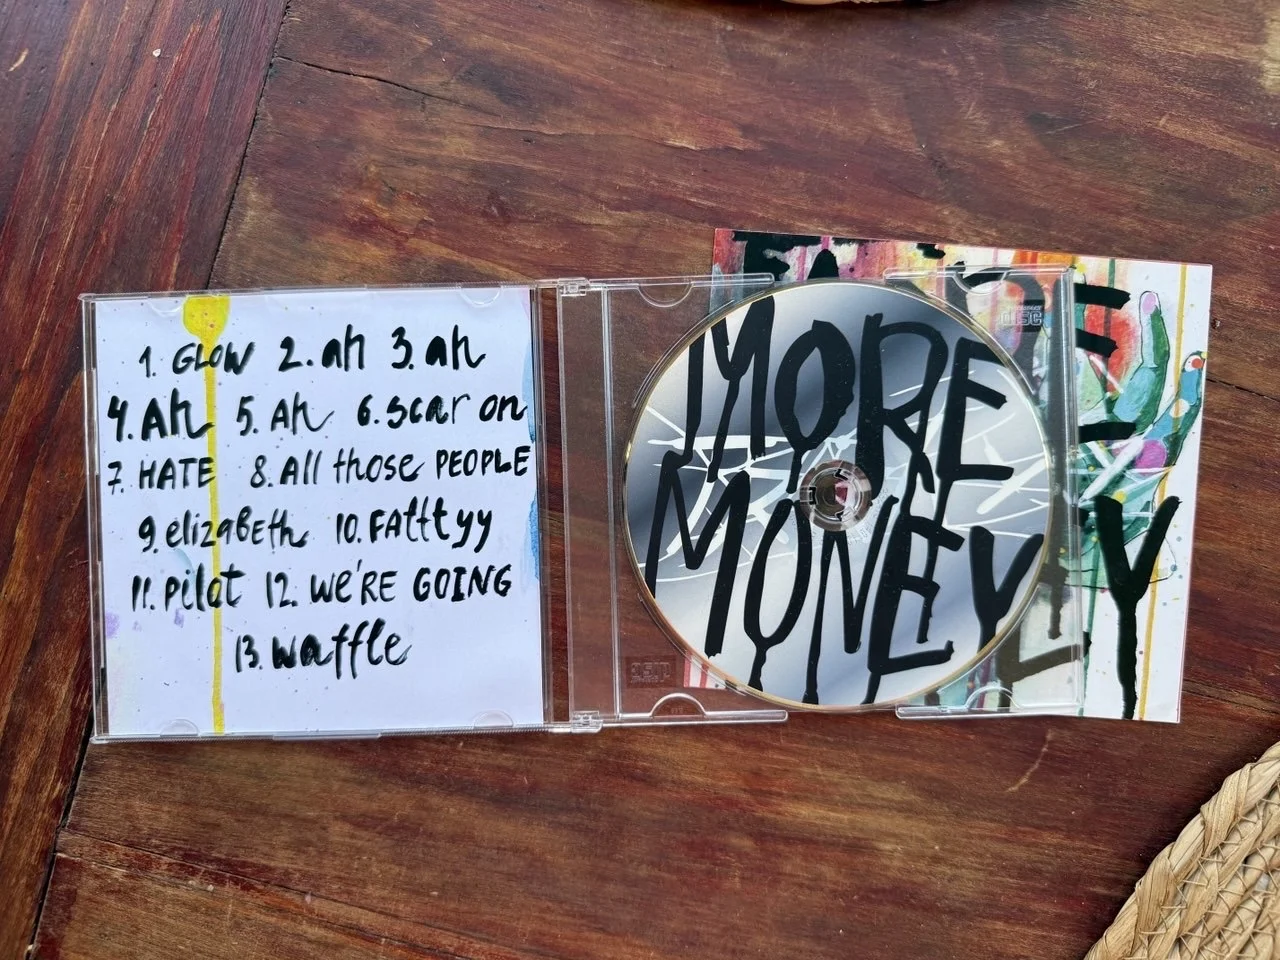 1. GLOW 2. ah 3. ah
4. Ah 5. Ah 6. scar on
7. HATE 8. All those PEOPLE
9. elizabeth 10. FAtttyy
11. pilot 12. WE'RE GOING
13. waffle
MORE
MONEY